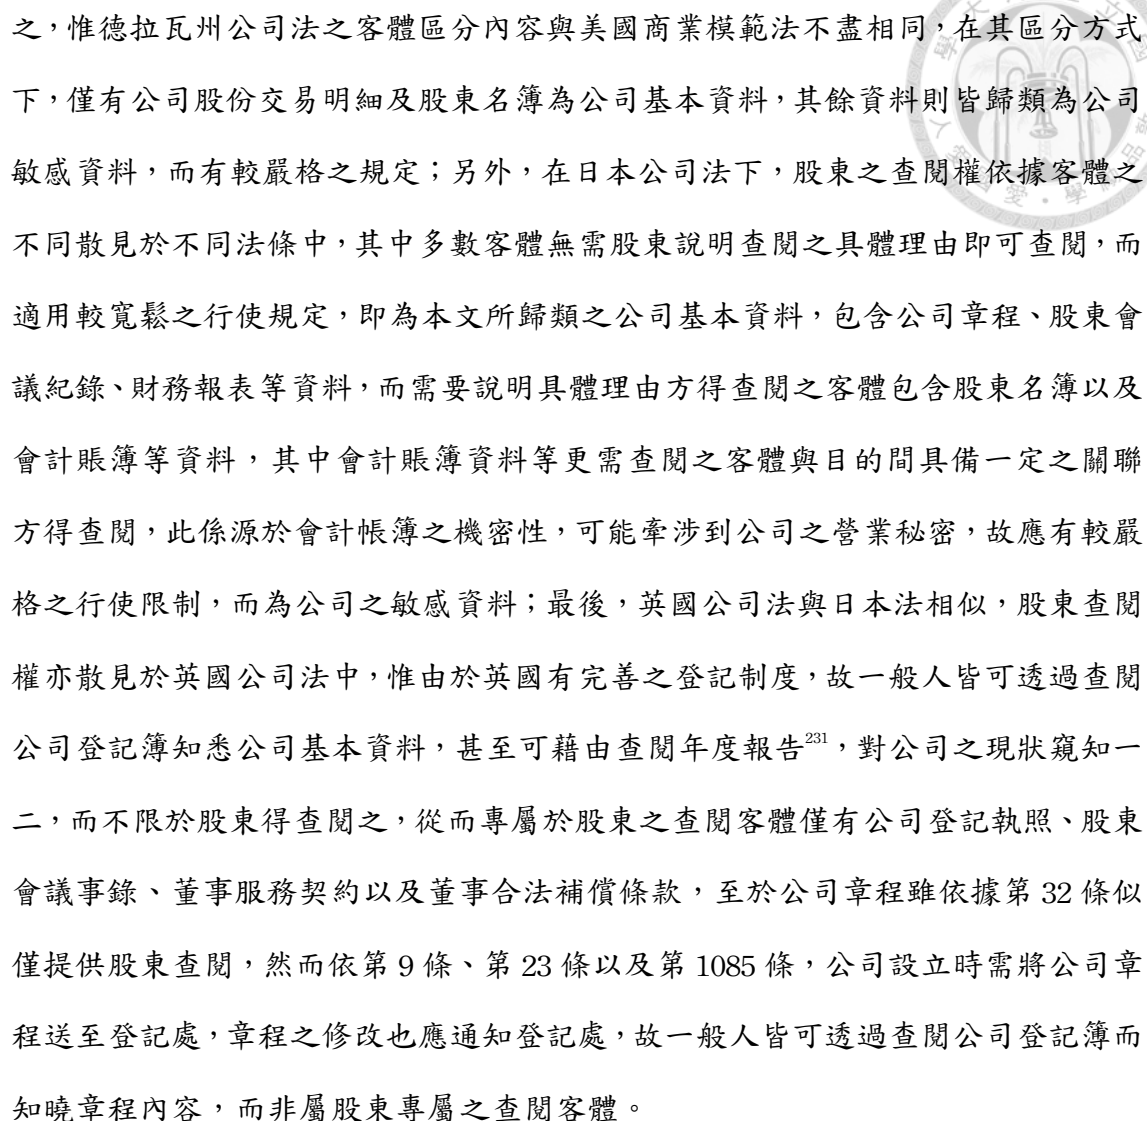 之，惟德拉瓦州公司法之客體區分內容與美國商業模範法不盡相同，在其區分方式
下，僅有公司股份交易明細及股東名簿為公司基本資料，其餘資料則皆歸類為公司
敏感資料，而有較嚴格之規定；另外，在日本公司法下，股東之查閱權依據客體之
不同散見於不同法條中，其中多數客體無需股東說明查閱之具體理由即可查閱，而
適用較寬鬆之行使規定，即為本文所歸類之公司基本資料，包含公司章程、股東會
議紀錄、財務報表等資料，而需要說明具體理由方得查閱之客體包含股東名簿以及
會計賬簿等資料，其中會計賬簿資料等更需查閱之客體與目的間具備一定之關聯
方得查閱，此係源於會計帳簿之機密性，可能牽涉到公司之營業秘密，故應有較嚴
格之行使限制，而為公司之敏感資料；最後，英國公司法與日本法相似，股東查閱
權亦散見於英國公司法中，惟由於英國有完善之登記制度，故一般人皆可透過查閱
公司登記簿知悉公司基本資料，甚至可藉由查閱年度報告231，對公司之現狀窺知一
二，而不限於股東得查閱之，從而專屬於股東之查閱客體僅有公司登記執照、股東
會議事錄、董事服務契約以及董事合法補償條款，至於公司章程雖依據第 32 條似
僅提供股東查閱，然而依第 9 條、第 23 條以及第 1085 條，公司設立時需將公司章
程送至登記處，章程之修改也應通知登記處，故一般人皆可透過查閱公司登記簿而
知曉章程內容，而非屬股東專屬之查閱客體。